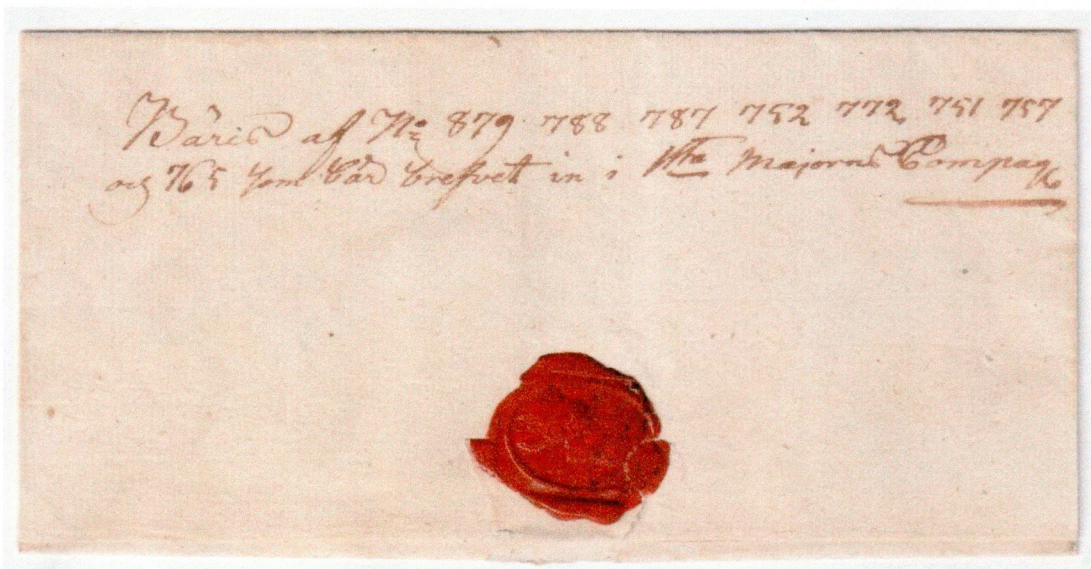 Båris af No 879 788 787 752 772 751 757
och 765 som bär brefvet in i 1sta Majorns Compag